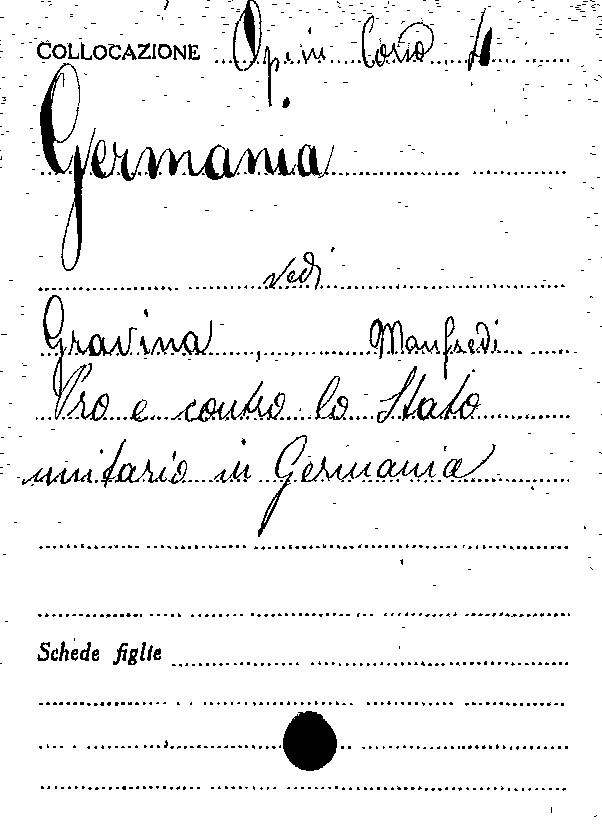 COLLOCAZIONE Op. in Corso 4
Germania
vedi
Gravina, Manfredi
Pro e contro lo Stato
unitario in Germania
Schede figlie